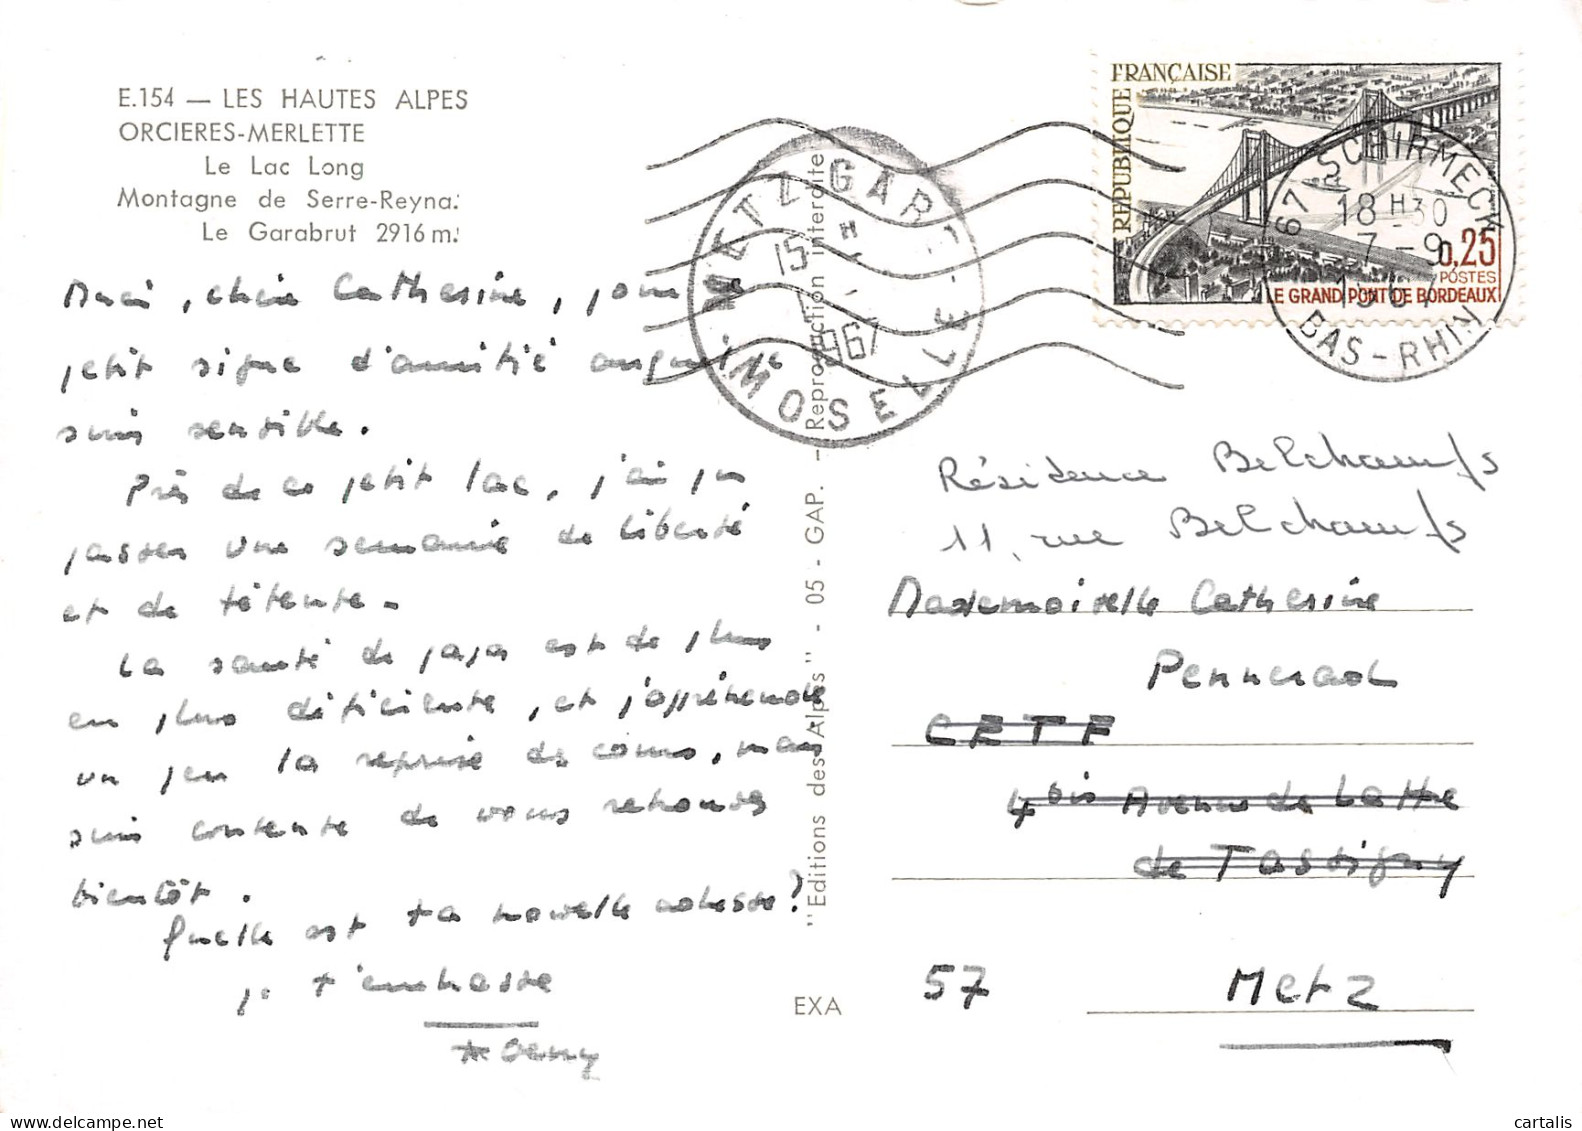 E.154 — LES HAUTES ALPES
ORCIERES-MERLETTE
Le Lac Long
Montagne de Serre-Reyna.
Le Garabrut 2916 m.
Merci, chère Catherine, pour le
petit signe d'amitié auquel je
suis sensible.
Près de ce petit lac, j'ai pu
passer une semaine de liberté
et de détente.
La santé de papa est de plus
en plus déficiente, et j'appréhende
un peu la reprise de cours, mais
suis contente de vous retrouver
bientôt.
Quelle est ta nouvelle adresse?
je t'embrasse
"Editions des Alpes" - 05 - GAP. - Reproduction interdite
EXA
METZ GARE
15 H
1967
MOSELLE
REPUBLIQUE FRANÇAISE
0,25
POSTES
LE GRAND PONT DE BORDEAUX
67 SCHIRMECK
18 H 30
7 - 9
1967
BAS-RHIN
Résidence Belchamps
11, rue Belchamps
Mademoiselle Catherine
Pennerad
CETE
4 bis Avenue de Lattre
de Tassigny
57 Metz
cartalis